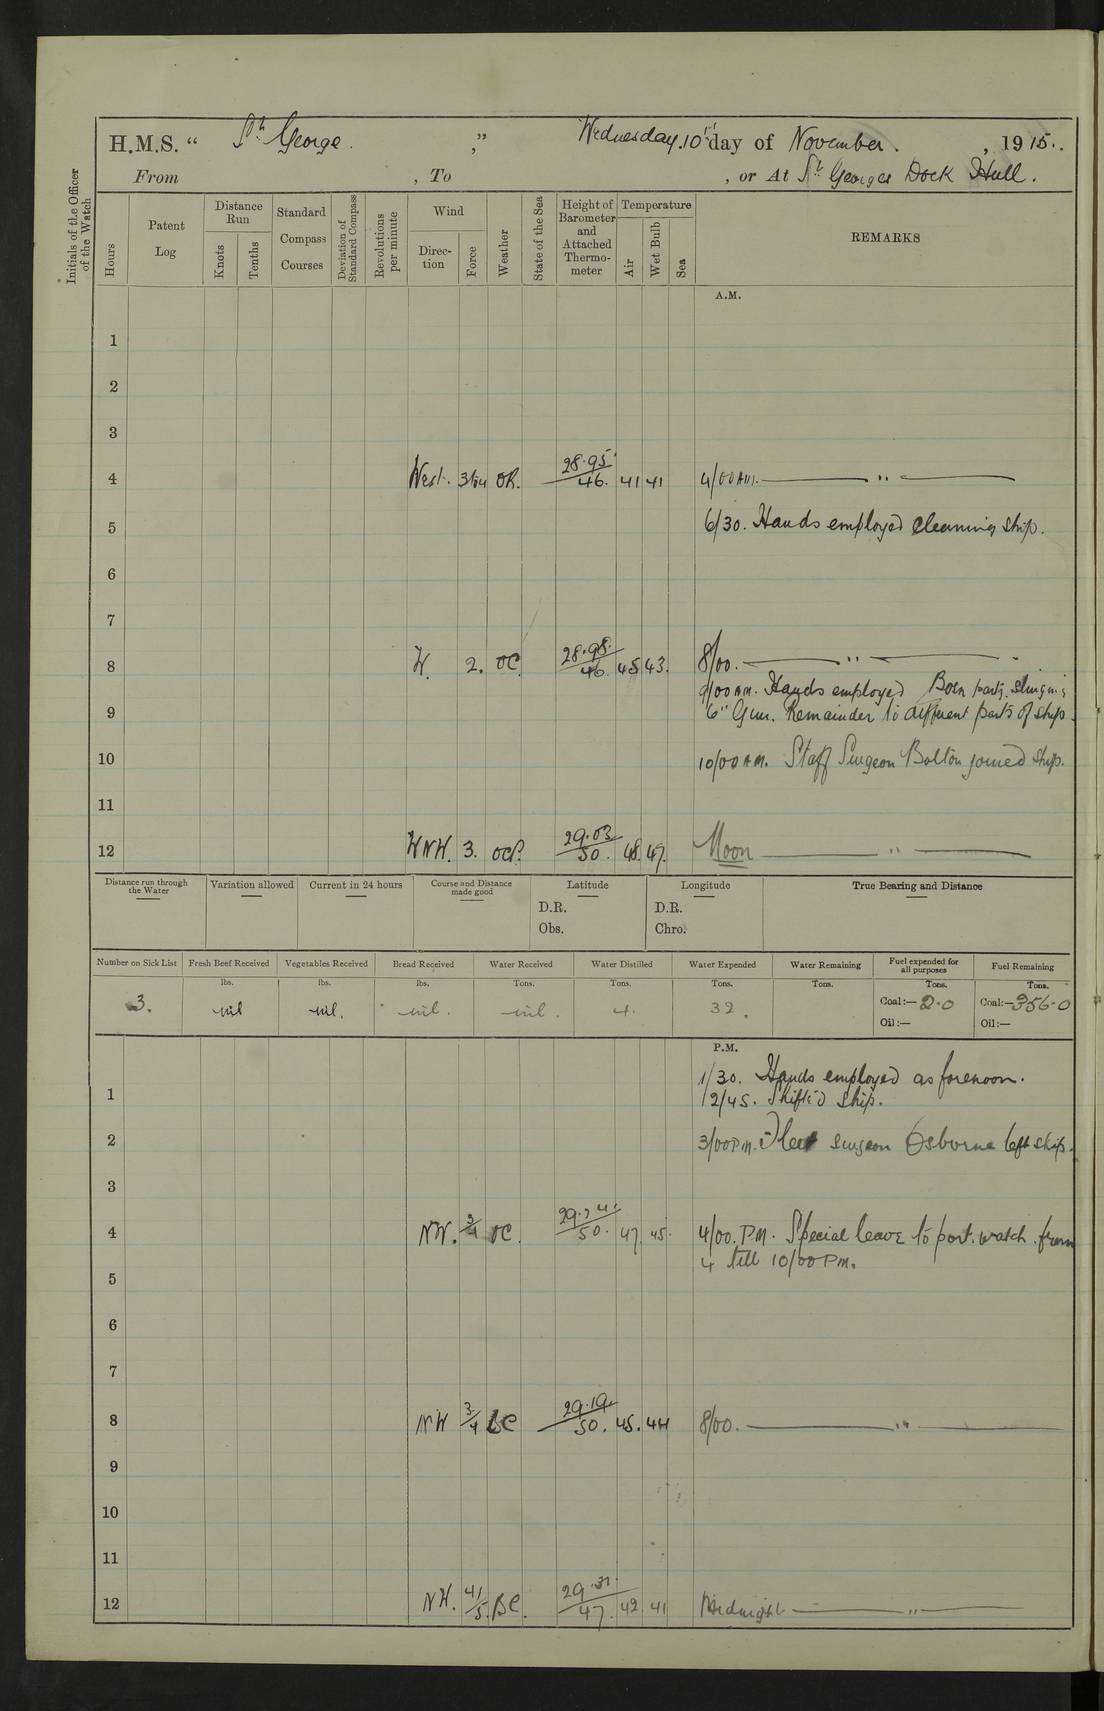 H.M.S. " St George. ," Wednesday. 10th day of November. , 1915.
From , To , or At St Georges Dock Hull.
Initials of the Officer of the Watch
Hours
Patent Log
Distance Run
Knots
Tenths
Standard Compass Courses
Deviation of Standard Compass
Revolutions per minute
Wind
Direction
Force
Weather
State of the Sea
Height of Barometer and Attached Thermometer
Temperature
Air
Wet Bulb
Sea
REMARKS
A.M.
1
2
3
4 West. 3to4 OR. 28.95/46. 41 41 4/00 AM. — " —
5 6/30. Hands employed cleaning ship.
6
7
8 W. 2. OC 28.98./46 45 43. 8/00. — " —
9/00 AM. Hands employed party slinging
9 6" Gun. Remainder to different parts of ship.
10 10/00 AM. Staff Surgeon Bolton joined ship.
11
12 WNW. 3. OCP. 29.03/50. 48. 47. Noon — " —
Distance run through the Water
Variation allowed
Current in 24 hours
Course and Distance made good
Latitude
D.R.
Obs.
Longitude
D.R.
Chro.
True Bearing and Distance
Number on Sick List
Fresh Beef Received
Vegetables Received
Bread Received
Water Received
Water Distilled
Water Expended
Water Remaining
Fuel expended for all purposes
Fuel Remaining
lbs. lbs. lbs. Tons. Tons. Tons. Tons. Tons. Tons.
3. nil nil. nil. nil. 4. 32. Coal:— 2.0 Coal:— 356.0
Oil:— Oil:—
P.M.
1/30. Hands employed as forenoon.
1 2/45. Shifted ship.
2 3/00 PM. Fleet surgeon Osborne left ship.
3
4 NW. 3/4 OC. 50. 47. 45. 4/00. P.M. Special leave to port. watch. from
4 till 10/00 PM.
5
6
7
8 NW 3/4 BC 29.19./50. 45. 44 8/00. — " —
9
10
11
12 NW. 4/5. BC. 29.31./47. 42 41 Midnight — " —